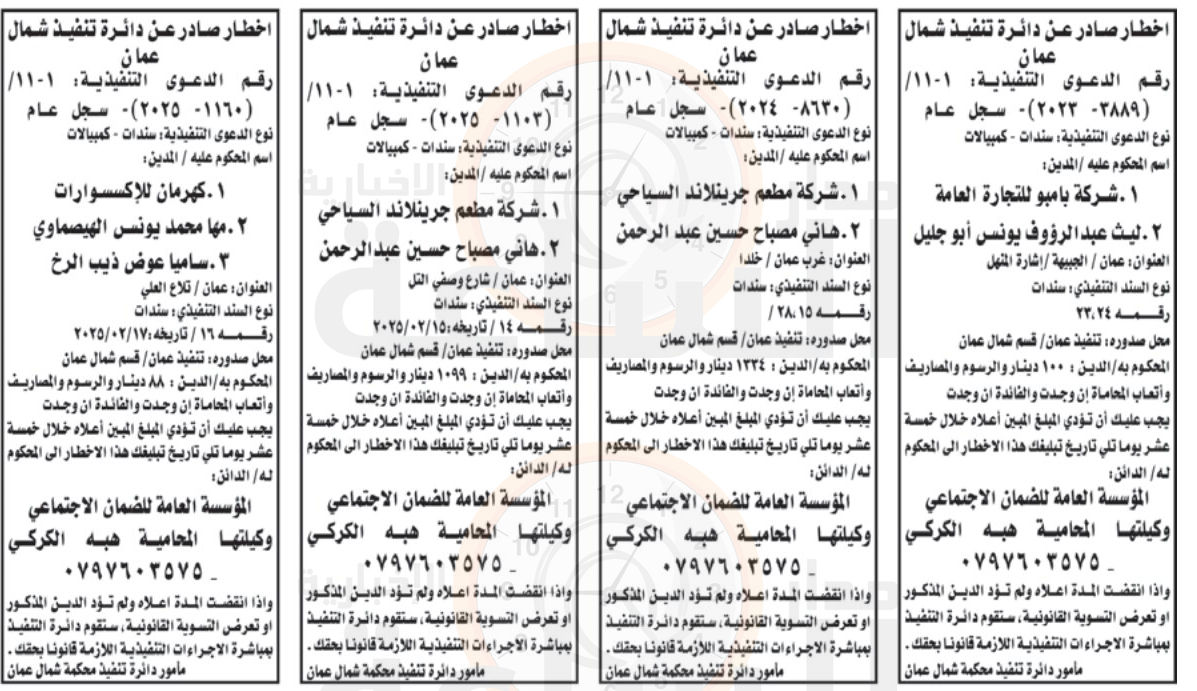 اخطار صادر عن دائرة تنفيذ شمال
عمان
رقم الدعوى التنفيذية: ١-١١/
(٣٨٨٩- ٢٠٢٣)- سجل عام
نوع الدعوى التنفيذية: سندات - كمبيالات
اسم المحكوم عليه /المدين:
١.شركة بامبو للتجارة العامة
٢.ليث عبدالرؤوف يونس أبو جليل
العنوان: عمان / الجبيهة /إشارة المنهل
نوع السند التنفيذي: سندات
رقـــمـــه ٢٣،٢٤
محل صدوره: تنفيذ عمان/ قسم شمال عمان
المحكوم به/الدين : ١٠٠ دينار والرسوم والمصاريف
وأتعاب المحاماة إن وجدت والفائدة ان وجدت
يجب عليك أن تؤدي المبلغ المبين أعلاه خلال خمسة
عشر يوما تلي تاريخ تبليغك هذا الاخطار الى المحكوم
له/ الدائن:
المؤسسة العامة للضمان الاجتماعي
وكيلتها المحامية هبه الكركي
_ ٠٧٩٧٦٠٣٥٧٥
واذا انقضت المدة اعلاه ولم تؤد الدين المذكور
او تعرض التسوية القانونية، ستقوم دائرة التنفيذ
بمباشرة الاجراءات التنفيذية اللازمة قانونا بحقك .
مأمور دائرة تنفيذ محكمة شمال عمان
اخطار صادر عن دائرة تنفيذ شمال
عمان
رقم الدعوى التنفيذية: ١-١١/
(٨٦٣٠- ٢٠٢٤)- سجل عام
نوع الدعوى التنفيذية: سندات - كمبيالات
اسم المحكوم عليه /المدين:
١.شركة مطعم جرينلاند السياحي
٢.هاني مصباح حسين عبد الرحمن
العنوان: غرب عمان / خلدا
نوع السند التنفيذي: سندات
رقـــمـــه ٢٨،١٥ /
محل صدوره: تنفيذ عمان/ قسم شمال عمان
المحكوم به/الدين : ١٣٣٤ دينار والرسوم والمصاريف
وأتعاب المحاماة إن وجدت والفائدة ان وجدت
يجب عليك أن تؤدي المبلغ المبين أعلاه خلال خمسة
عشر يوما تلي تاريخ تبليغك هذا الاخطار الى المحكوم
له/ الدائن:
المؤسسة العامة للضمان الاجتماعي
وكيلتها المحامية هبه الكركي
_ ٠٧٩٧٦٠٣٥٧٥
واذا انقضت المدة اعلاه ولم تؤد الدين المذكور
او تعرض التسوية القانونية، ستقوم دائرة التنفيذ
بمباشرة الاجراءات التنفيذية اللازمة قانونا بحقك .
مأمور دائرة تنفيذ محكمة شمال عمان
اخطار صادر عن دائرة تنفيذ شمال
عمان
رقم الدعوى التنفيذية: ١-١١/
(١١٠٣- ٢٠٢٥)- سجل عام
نوع الدعوى التنفيذية: سندات - كمبيالات
اسم المحكوم عليه /المدين:
١.شركة مطعم جرينلاند السياحي
٢.هاني مصباح حسين عبدالرحمن
العنوان: عمان / شارع وصفي التل
نوع السند التنفيذي: سندات
رقـــمـــه ١٤ / تاريخه:٢٠٢٥/٠٢/١٥
محل صدوره: تنفيذ عمان/ قسم شمال عمان
المحكوم به/الدين : ١٠٩٩ دينار والرسوم والمصاريف
وأتعاب المحاماة إن وجدت والفائدة ان وجدت
يجب عليك أن تؤدي المبلغ المبين أعلاه خلال خمسة
عشر يوما تلي تاريخ تبليغك هذا الاخطار الى المحكوم
له/ الدائن:
المؤسسة العامة للضمان الاجتماعي
وكيلتها المحامية هبه الكركي
_ ٠٧٩٧٦٠٣٥٧٥
واذا انقضت المدة اعلاه ولم تؤد الدين المذكور
او تعرض التسوية القانونية، ستقوم دائرة التنفيذ
بمباشرة الاجراءات التنفيذية اللازمة قانونا بحقك .
مأمور دائرة تنفيذ محكمة شمال عمان
اخطار صادر عن دائرة تنفيذ شمال
عمان
رقم الدعوى التنفيذية: ١-١١/
(١١٦٠- ٢٠٢٥)- سجل عام
نوع الدعوى التنفيذية: سندات - كمبيالات
اسم المحكوم عليه / المدين:
١.كهرمان للإكسسوارات
٢.مها محمد يونس الهيصماوي
٣.ساميا عوض ذيب الرخ
العنوان: عمان / تلاع العلي
نوع السند التنفيذي: سندات
رقـــمـــه ١٦ / تاريخه:٢٠٢٥/٠٢/١٧
محل صدوره: تنفيذ عمان/ قسم شمال عمان
المحكوم به/الدين : ٨٨ دينار والرسوم والمصاريف
وأتعاب المحاماة إن وجدت والفائدة ان وجدت
يجب عليك أن تؤدي المبلغ المبين أعلاه خلال خمسة
عشر يوما تلي تاريخ تبليغك هذا الاخطار الى المحكوم
له/ الدائن:
المؤسسة العامة للضمان الاجتماعي
وكيلتها المحامية هبه الكركي
_ ٠٧٩٧٦٠٣٥٧٥
واذا انقضت المدة اعلاه ولم تؤد الدين المذكور
او تعرض التسوية القانونية، ستقوم دائرة التنفيذ
بمباشرة الاجراءات التنفيذية اللازمة قانونا بحقك .
مأمور دائرة تنفيذ محكمة شمال عمان
مدار
الساعة
الإخبارية